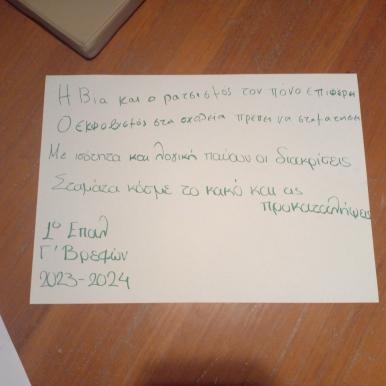 Η Βία και ο ρατσισμός τον πόνο επιφέρει
Ο εκφοβισμός στα σχολεία πρέπει να σταματήσει
Με ισότητα και λογική παύουν οι διακρίσεις
Σταμάτα κόσμε το κακό και τις
προκαταλήψεις
1ο Επαλ
Γ' Βρεφών
2023-2024